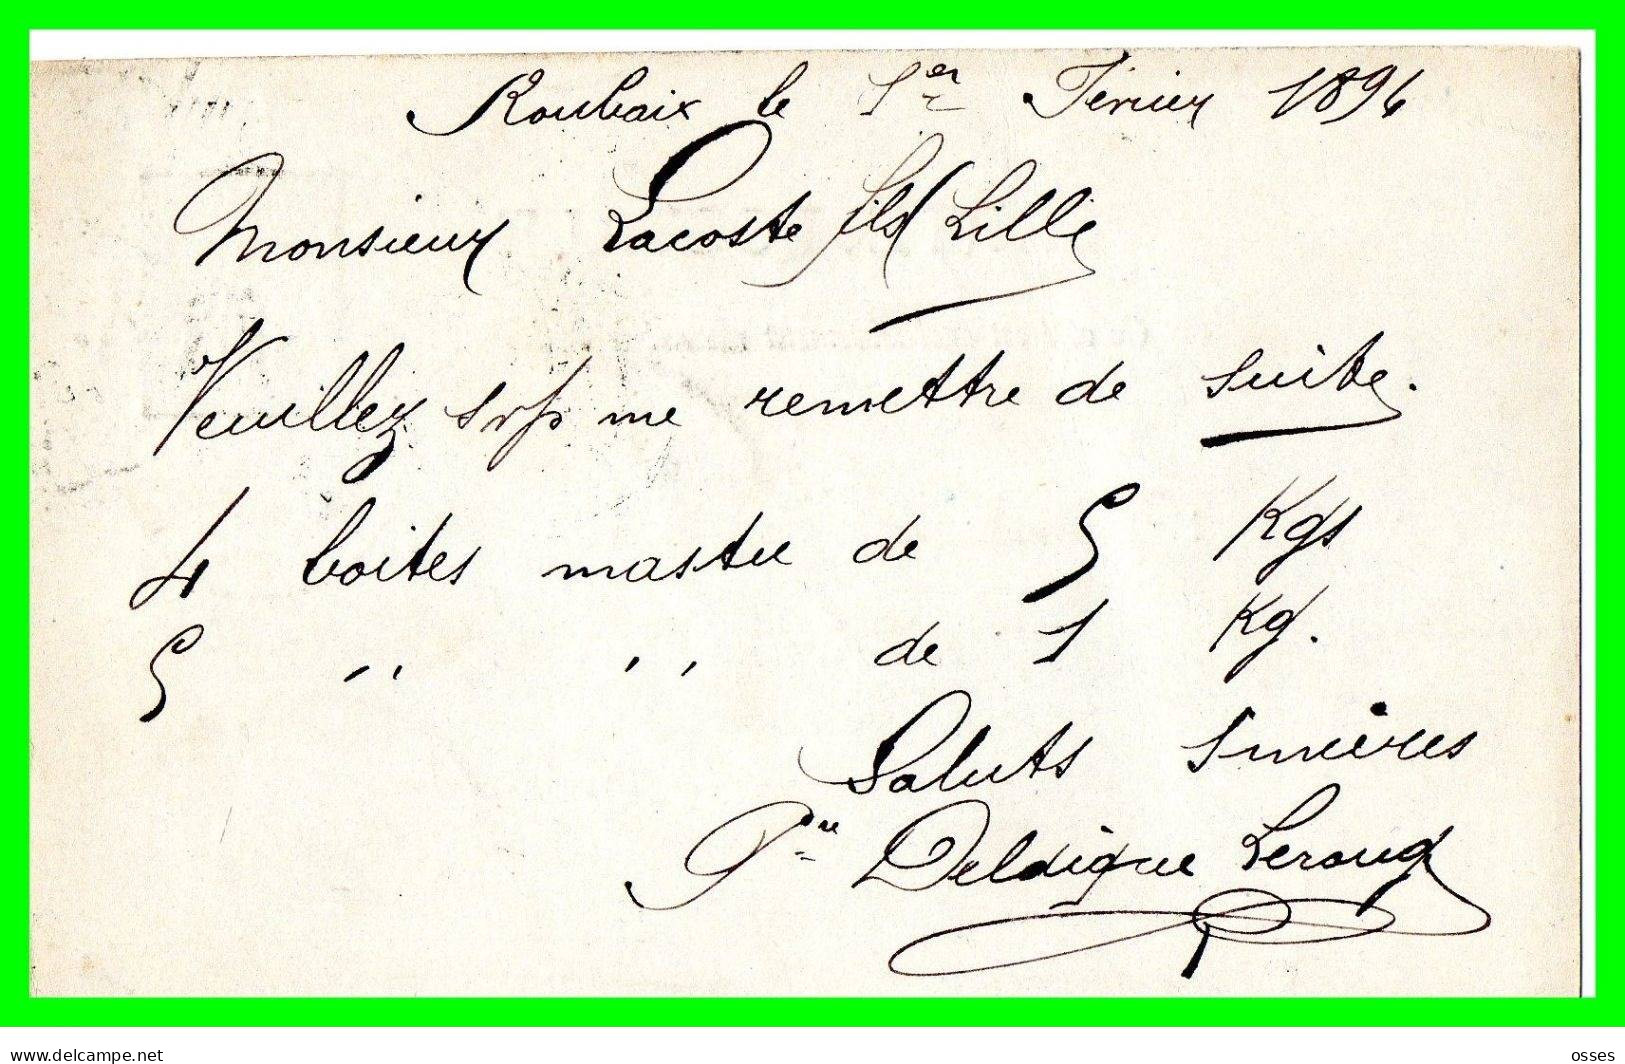 Roubaix le 1er Février 1894
Monsieur Lacoste fils Lille
Veuillez svp me remettre de suite.
4 boites mastic de 5 Kgs
5 " " de 1 Kg.
Saluts Sincères
Delaigue Leroug
delcampe.net
osses